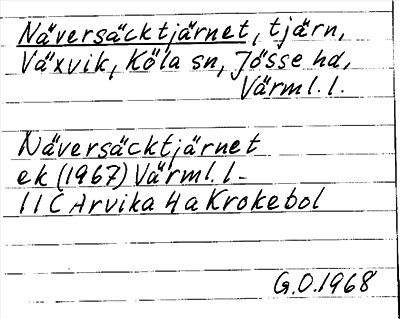 Näversäcktjärnet, tjärn,
Växvik, Köla sn, Jösse hd,
Värml. l.
Näversäcktjärnet
ek (1967) Värml. l-
11C Arvika 4a Krokebol
G.O.1968